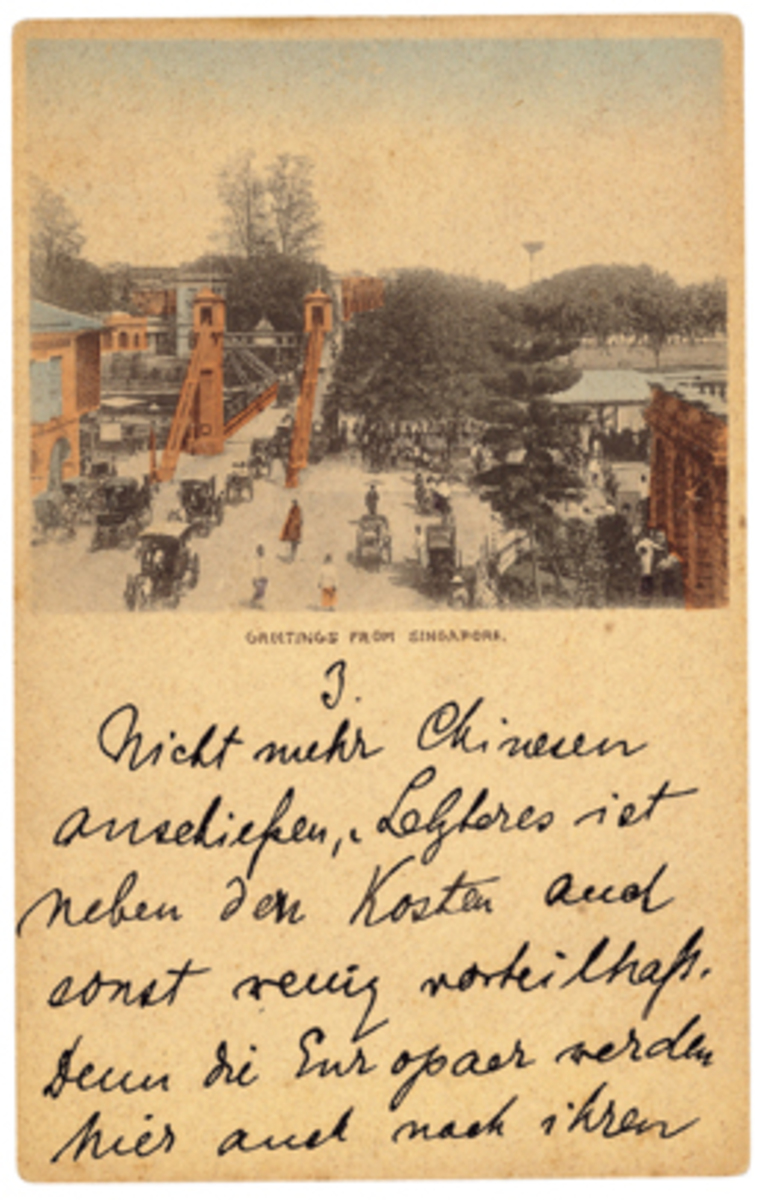 GREETINGS FROM SINGAPORE.
3.
Nicht mehr Chinesen
anschießen, Letzteres ist
neben den Kosten auch
sonst wenig vorteilhaft.
Denn die Europaer werden
hier auch nach ihren